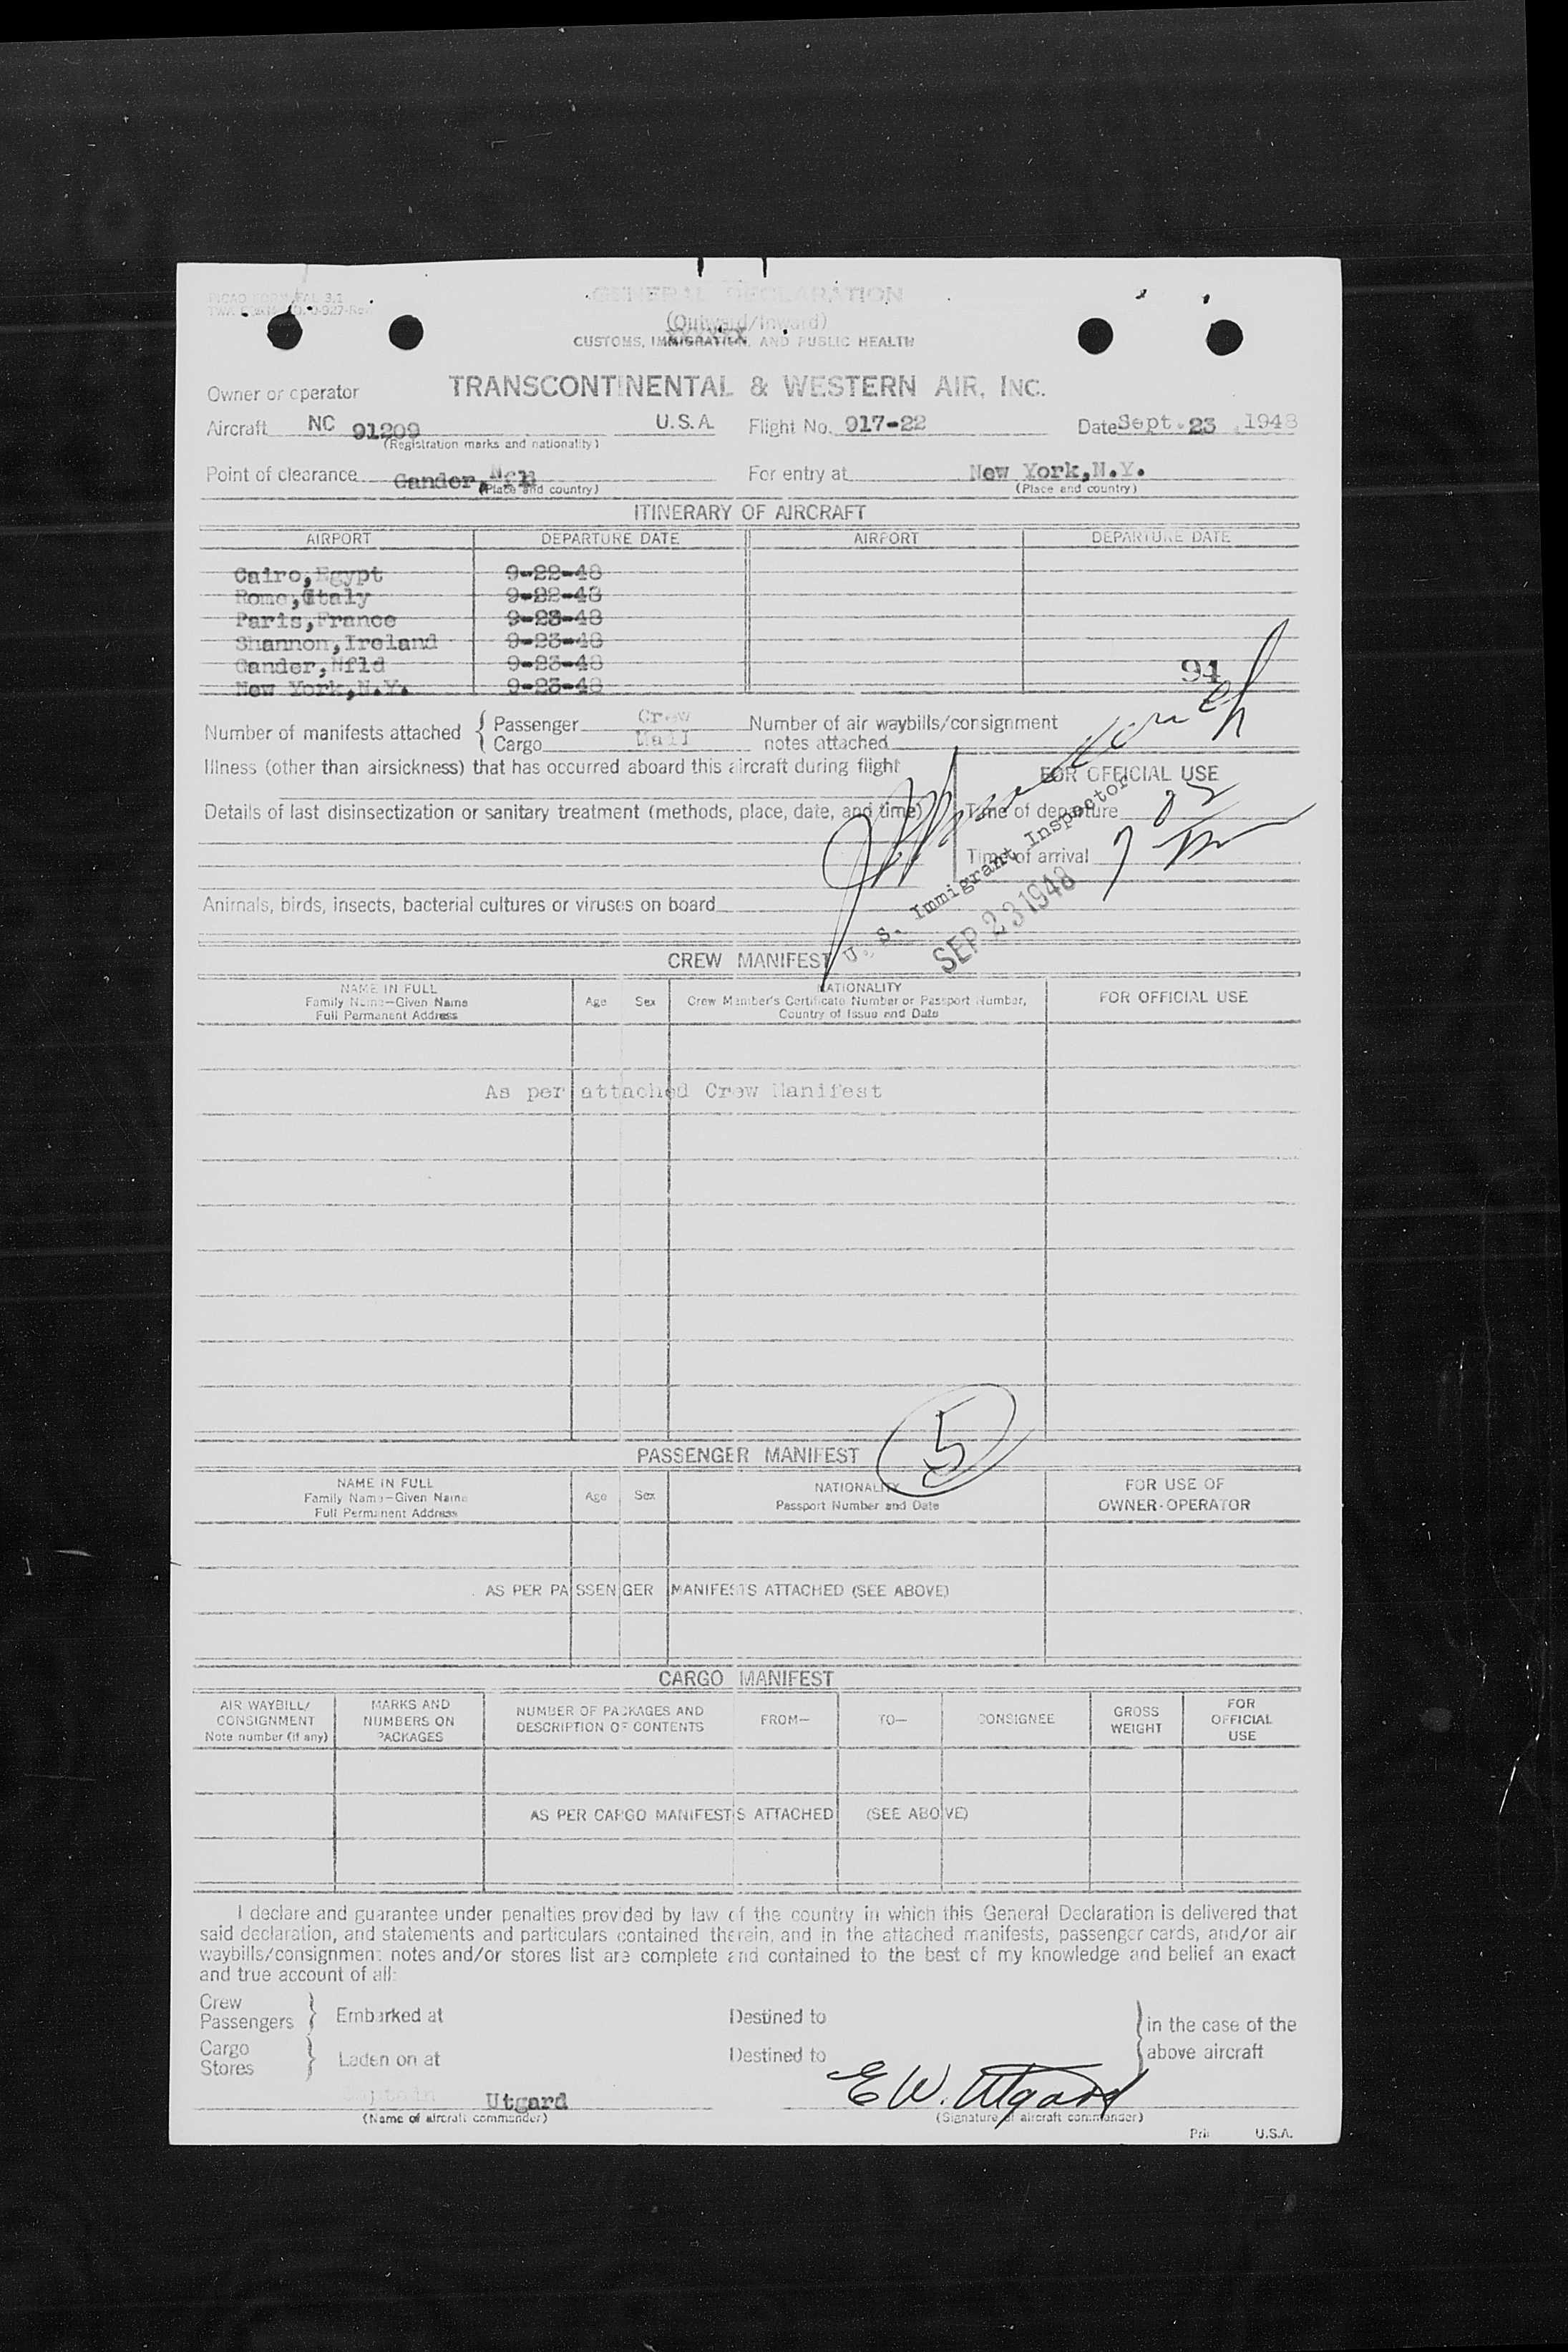 PICAO FORM FAL 3.1
GENERAL DECLARATION
(Outward/Inward)
CUSTOMS, IMMIGRATION, AND PUBLIC HEALTH
Owner or operator TRANSCONTINENTAL & WESTERN AIR, INC.
Aircraft NC 91209 U.S.A. Flight No. 917-22 Date Sept. 23, 1948
(Registration marks and nationality)
Point of clearance Gander, Nfld For entry at New York, N.Y.
(Place and country) (Place and country)
ITINERARY OF AIRCRAFT
AIRPORT DEPARTURE DATE AIRPORT DEPARTURE DATE
Cairo, Egypt 9-22-48
Rome, Italy 9-22-48
Paris, France 9-23-48
Shannon, Ireland 9-23-48
Gander, Nfld 9-23-48
New York, N.Y. 9-23-48
94
Number of manifests attached { Passenger Crew Number of air waybills/consignment
Cargo Mail notes attached
Illness (other than airsickness) that has occurred aboard this aircraft during flight
FOR OFFICIAL USE
Details of last disinsectization or sanitary treatment (methods, place, date, and time)
Time of departure
Time of arrival
U. S. Immigrant Inspector
SEP 23 1948
Animals, birds, insects, bacterial cultures or viruses on board
CREW MANIFEST
NAME IN FULL Age Sex NATIONALITY FOR OFFICIAL USE
Family Name—Given Name Crew Member's Certificate Number or Passport Number,
Full Permanent Address Country of Issue and Date
As per attached Crew Manifest
5
PASSENGER MANIFEST
NAME IN FULL Age Sex NATIONALITY FOR USE OF
Family Name—Given Name Passport Number and Date OWNER-OPERATOR
Full Permanent Address
AS PER PASSENGER MANIFESTS ATTACHED (SEE ABOVE)
CARGO MANIFEST
AIR WAYBILL/ MARKS AND NUMBER OF PACKAGES AND FROM— TO— CONSIGNEE GROSS FOR
CONSIGNMENT NUMBERS ON DESCRIPTION OF CONTENTS WEIGHT OFFICIAL
Note number (if any) PACKAGES USE
AS PER CARGO MANIFESTS ATTACHED (SEE ABOVE)
I declare and guarantee under penalties provided by law of the country in which this General Declaration is delivered that
said declaration, and statements and particulars contained therein, and in the attached manifests, passenger cards, and/or air
waybills/consignment notes and/or stores list are complete and contained to the best of my knowledge and belief an exact
and true account of all:
Crew
Passengers } Embarked at Destined to } in the case of the
Cargo
Stores } Laden on at Destined to above aircraft
Captain Utgard E W. Utgard
(Name of aircraft commander) (Signature of aircraft commander)
U.S.A.